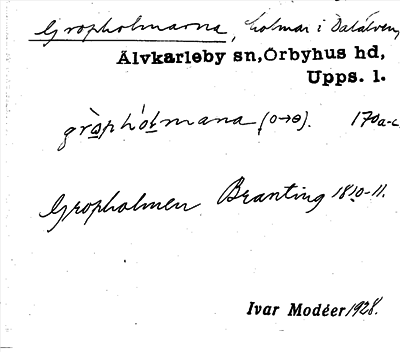 Gropholmarna, holmar i Dalälven,
Älvkarleby sn, Örbyhus hd,
Upps. l.
grò̱phó̱ƚmana (o→ɵ). 170a-c
Gropholmen Branting 1810-11.
Ivar Modéer 1928.